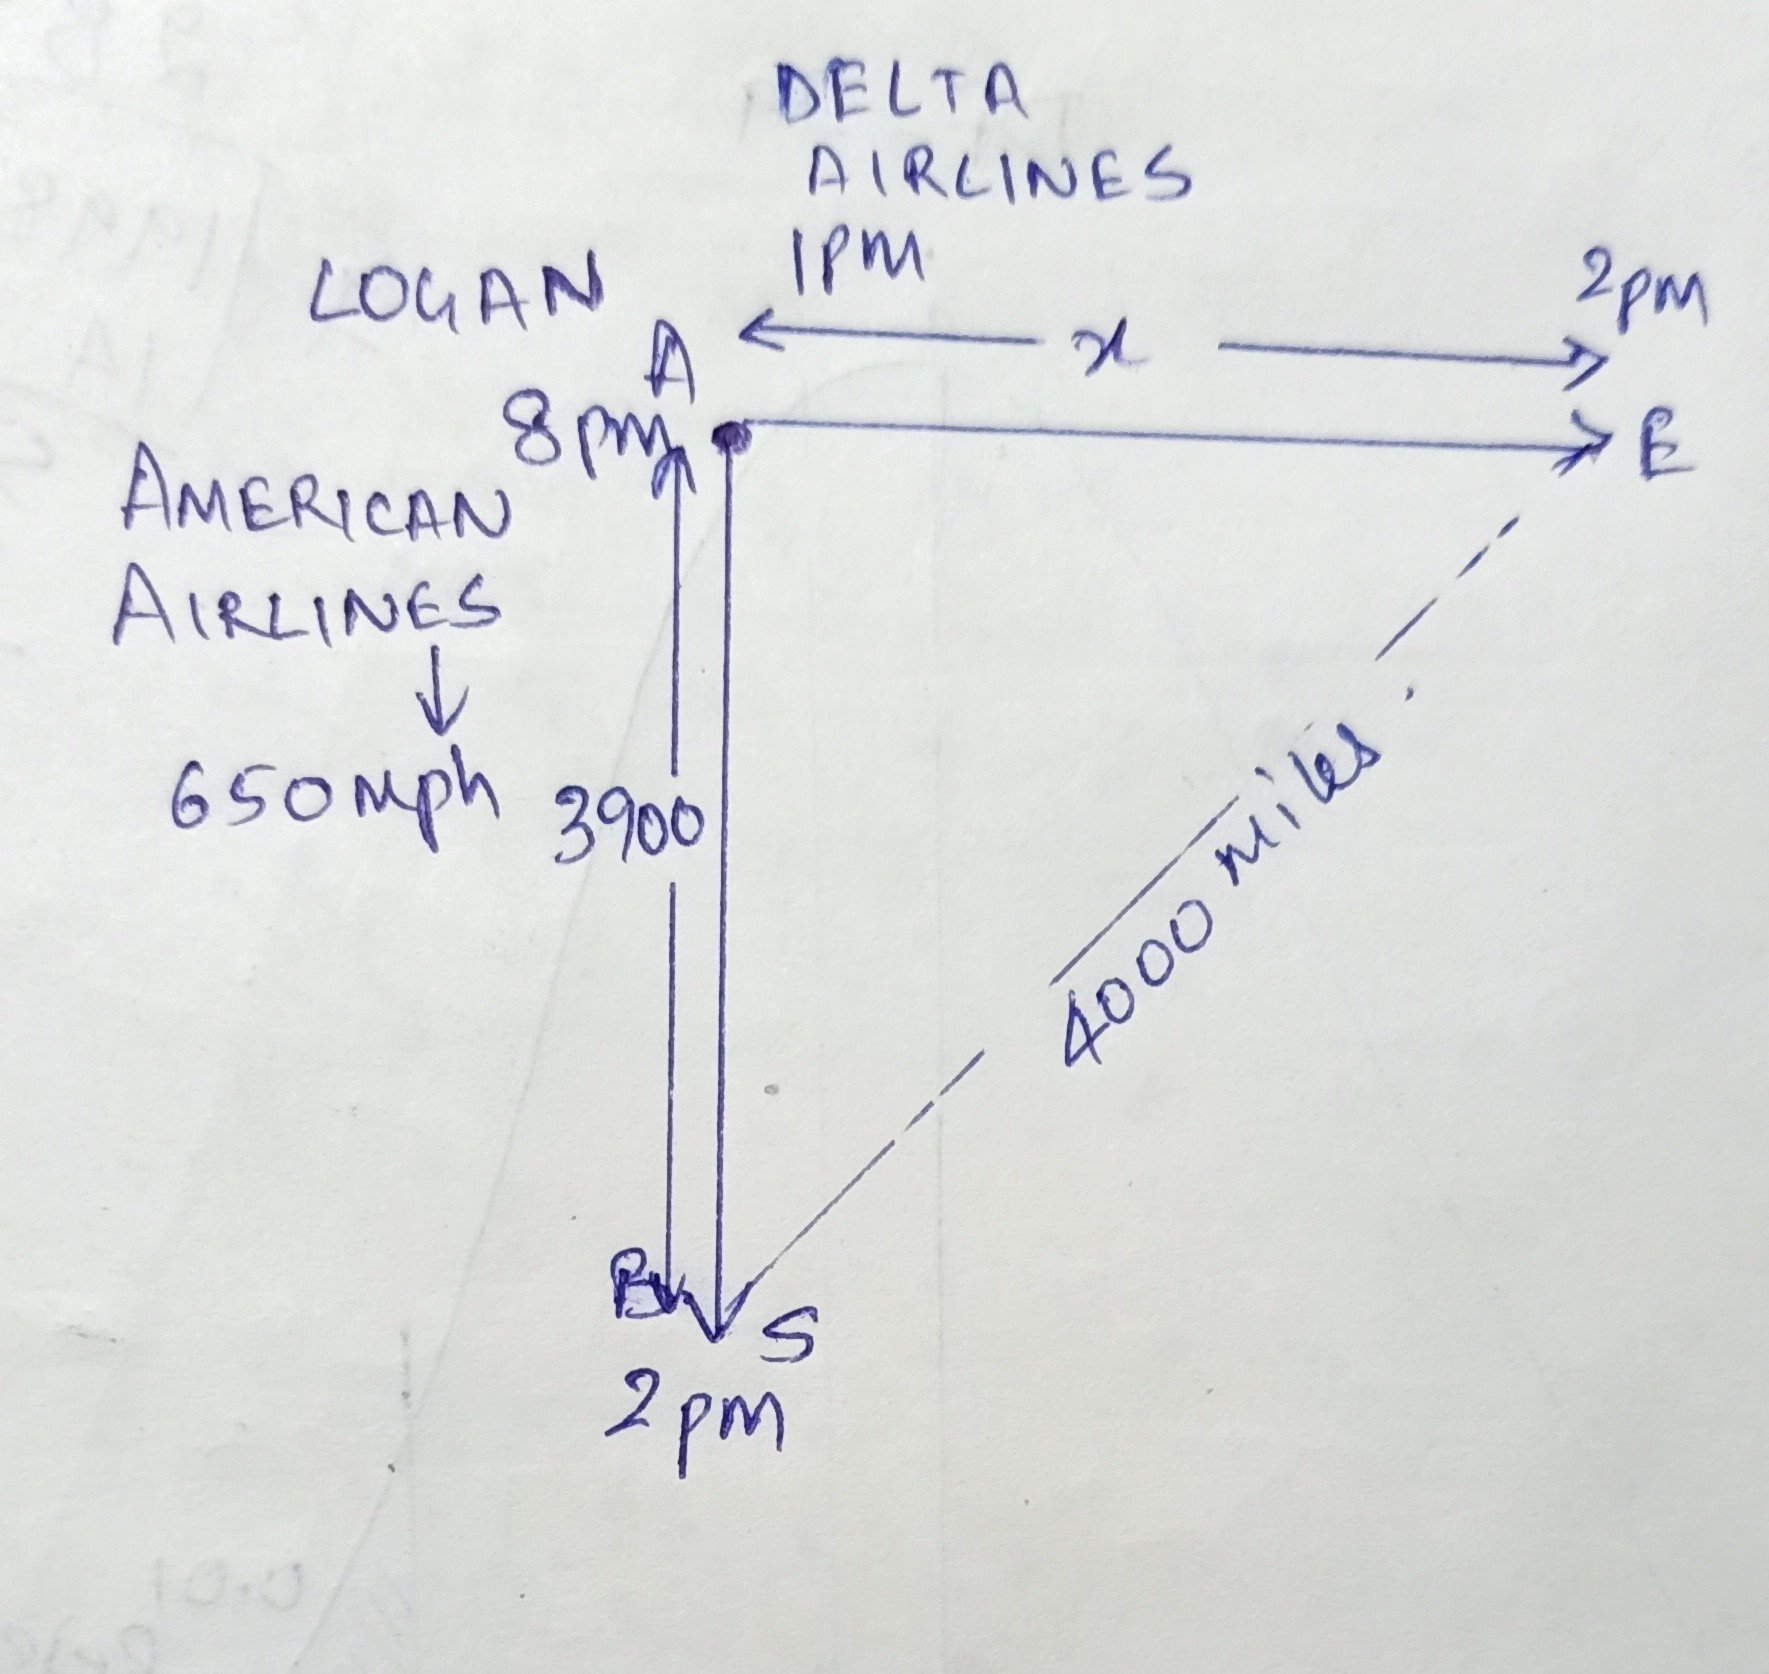 DELTA
AIRLINES
1PM
LOGAN
2pm
x
A
8pm
E
AMERICAN
AIRLINES
650mph
3900
4000 miles
B
S
2pm